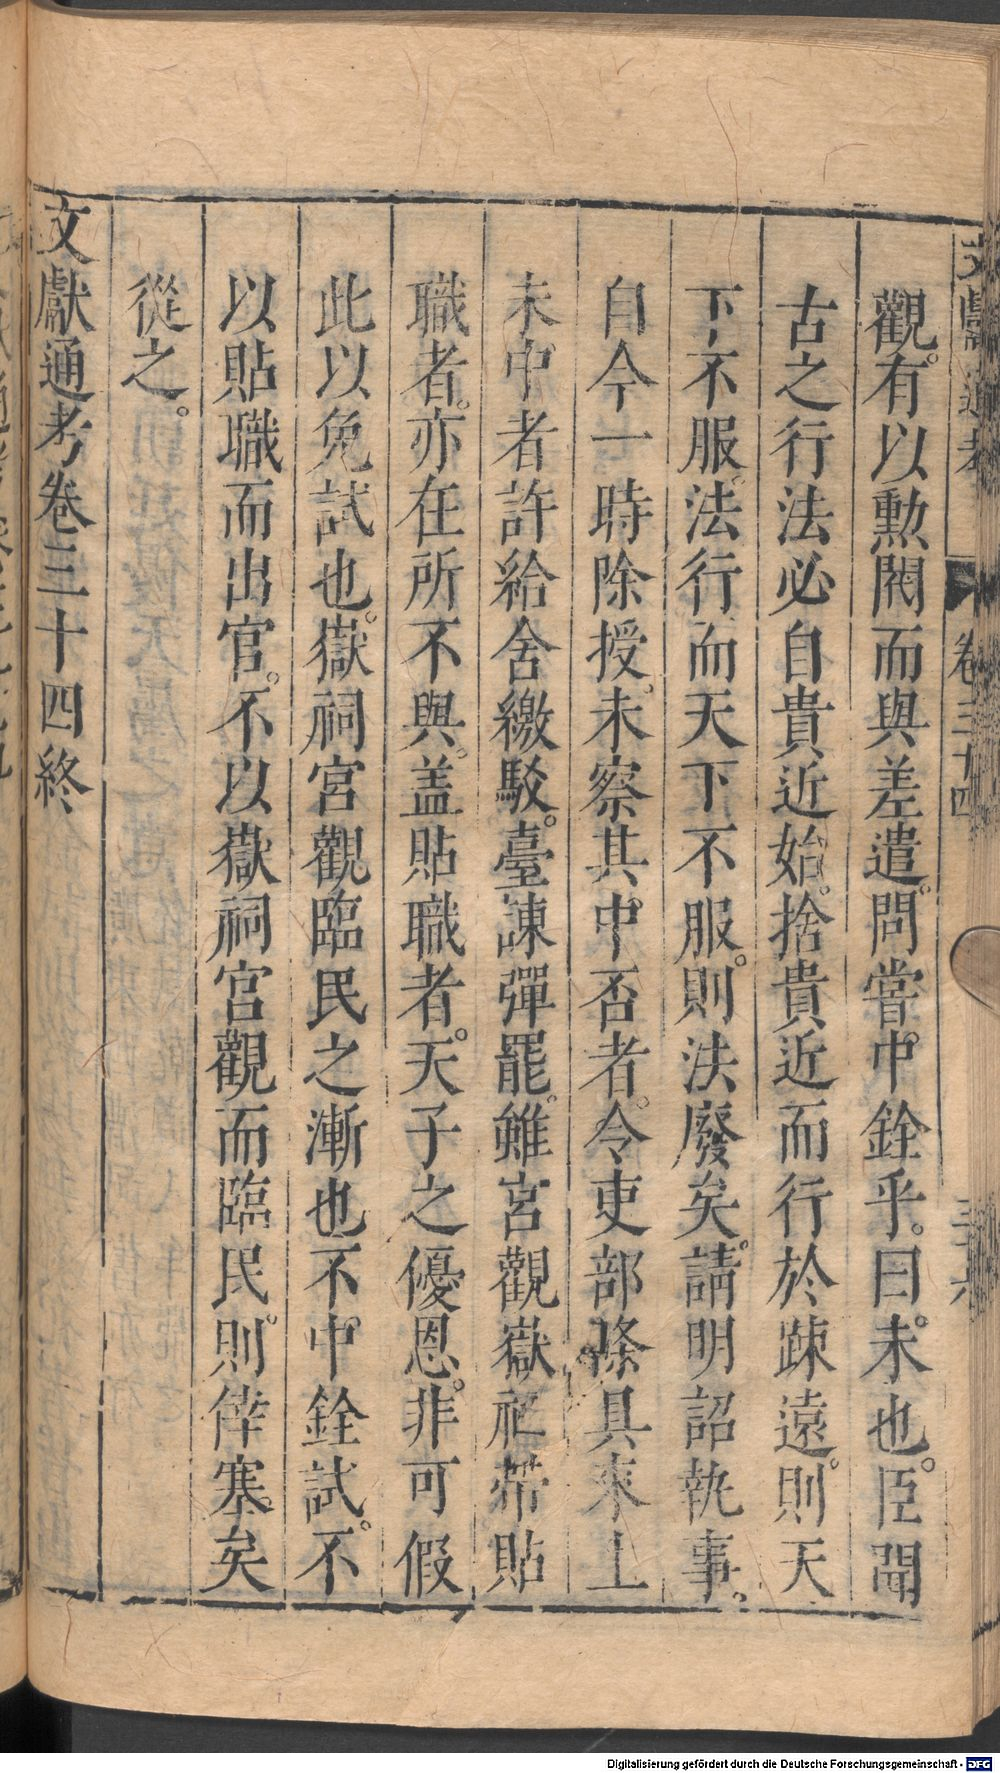 文獻通考 卷三十四 三十六
觀。有以勲閥而與差遣。問嘗中銓乎。曰。未也。臣聞
古之行法必自貴近始。捨貴近而行於疎遠。則天
下不服。法行而天下不服。則法廢矣。請明詔執事。
自今一時除授。未察其中否者。令吏部條具來上
未中者許給舍繳駁。臺諫彈罷。雖宮觀嶽祀帶貼
職者。亦在所不與。蓋貼職者。天子之優恩。非可假
此以免試也。嶽祠宮觀臨民之漸也不中銓試。不
以貼職而出官。不以嶽祠宮觀而臨民。則倖塞矣
從之。
文獻通考卷三十四終
Digitalisierung gefördert durch die Deutsche Forschungsgemeinschaft - DFG